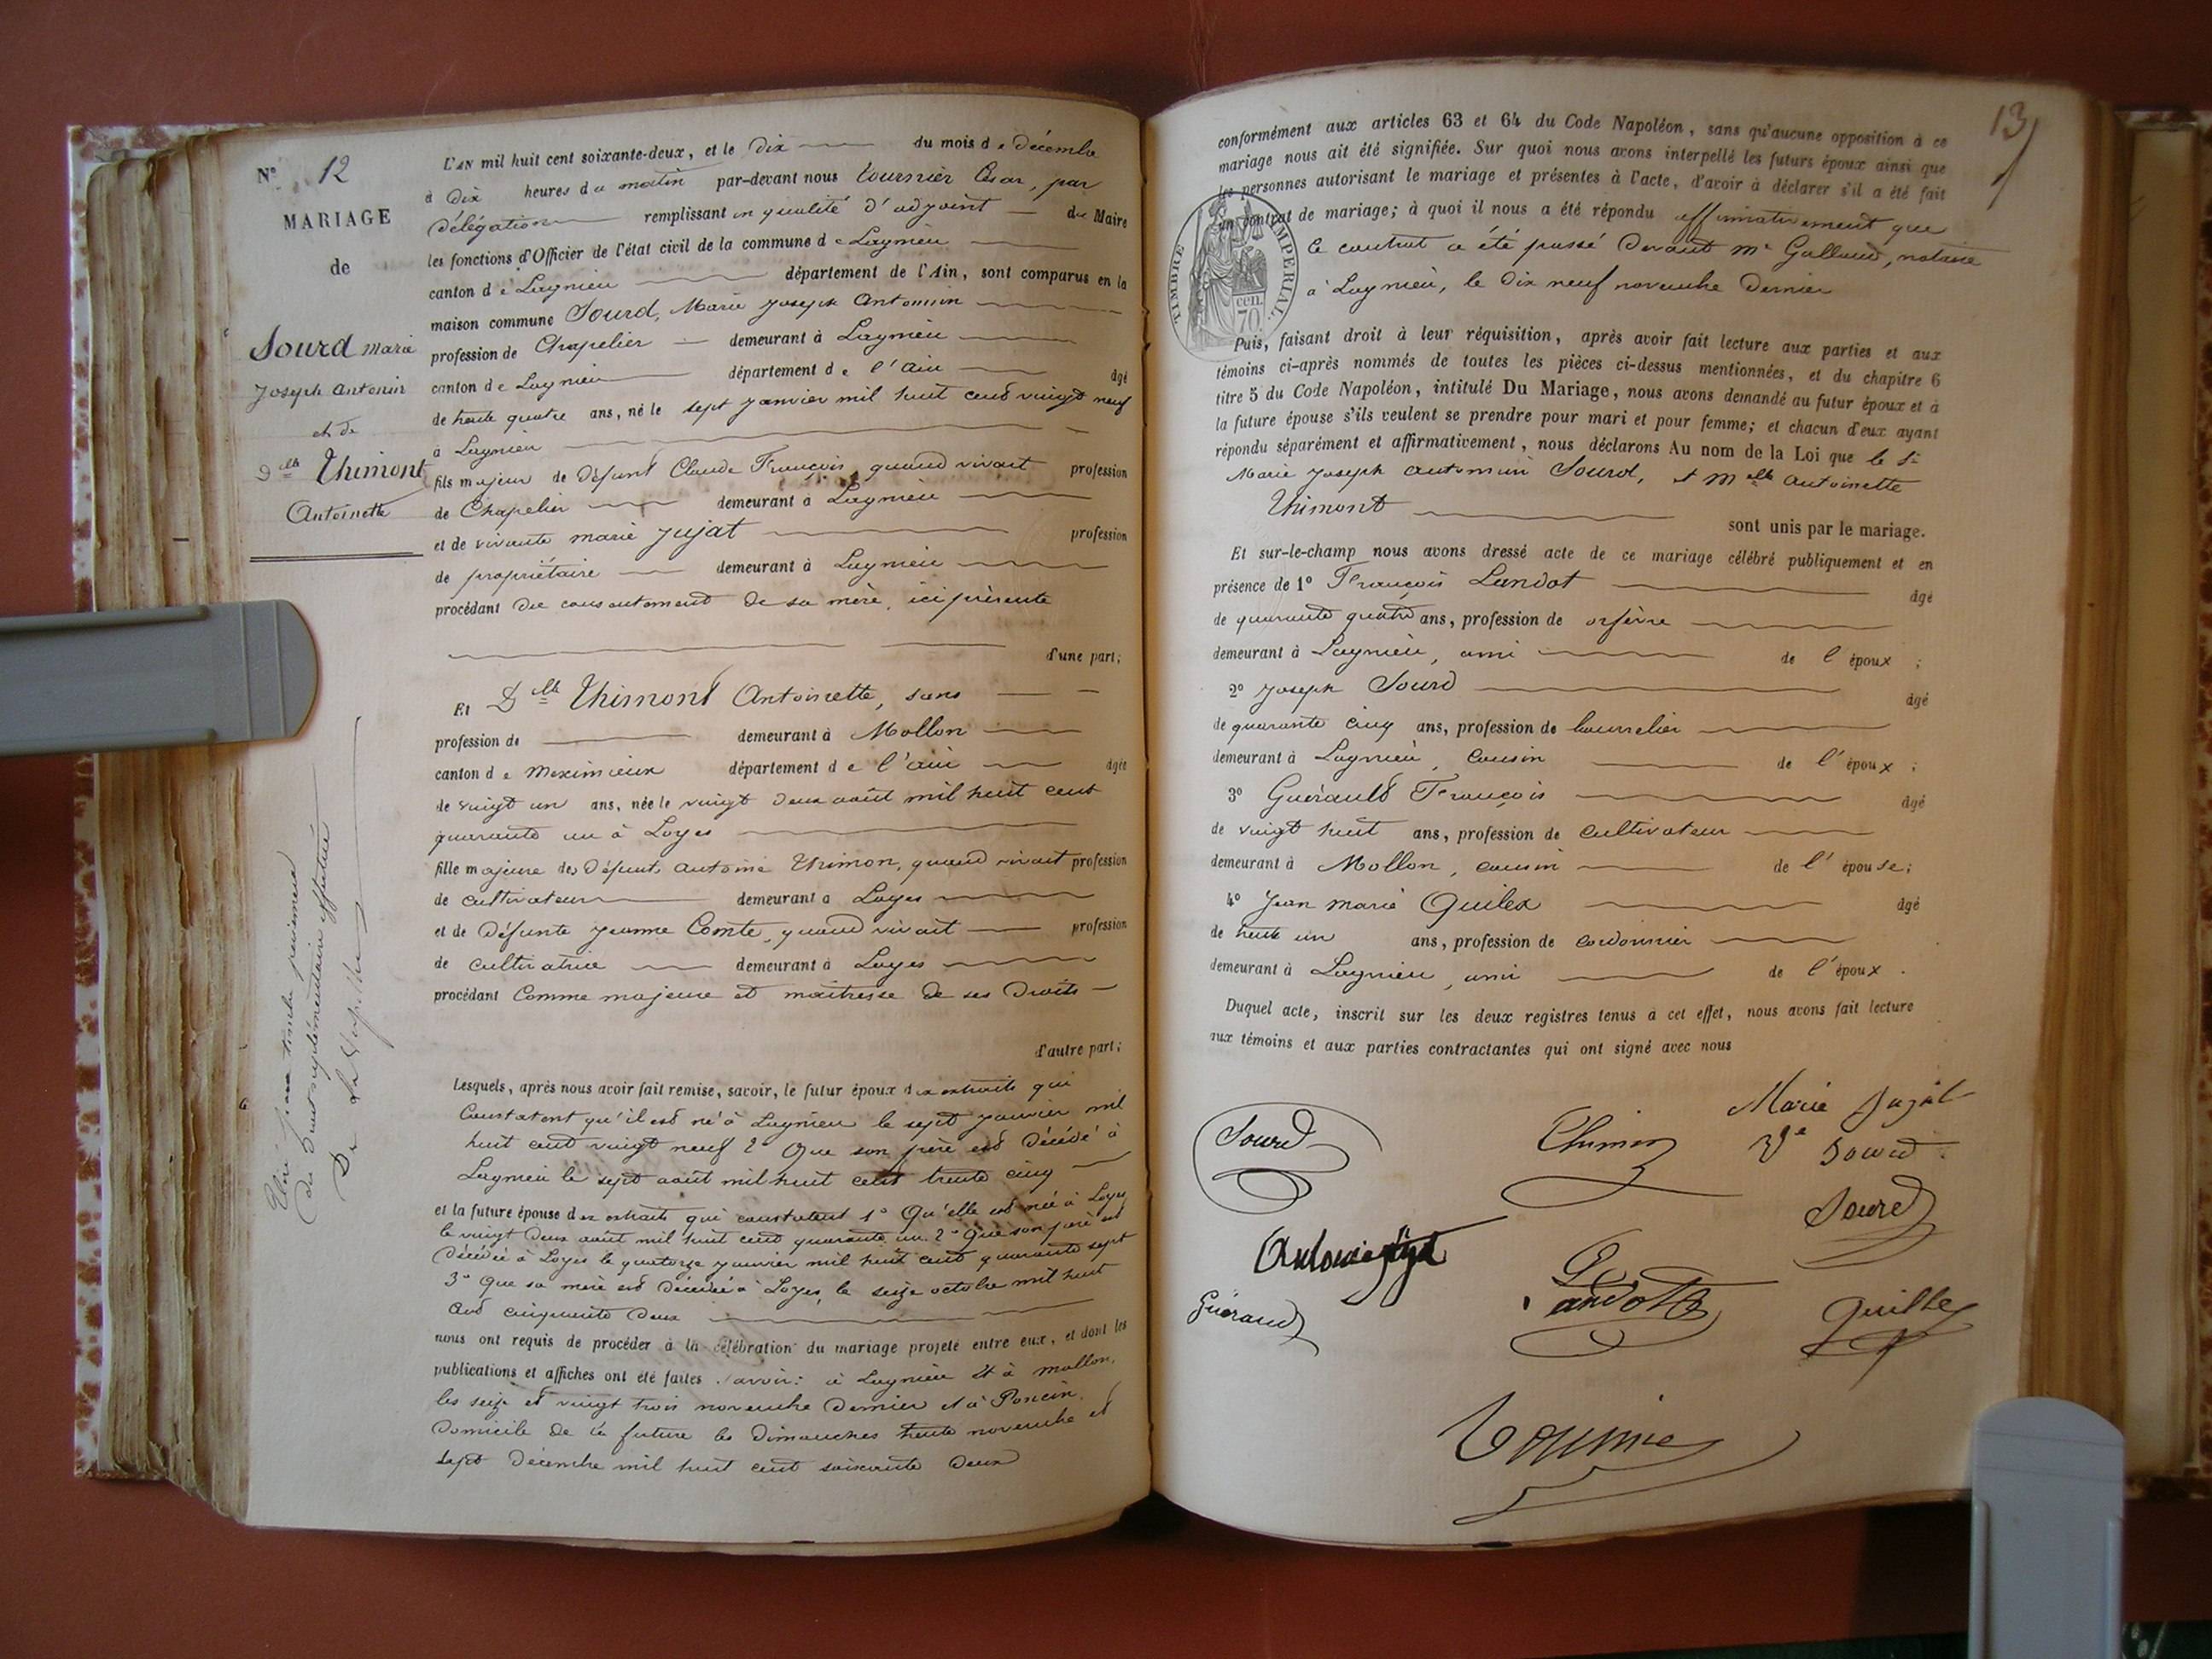 N° 12
MARIAGE
de
Sourd Marie
Joseph Antonin
et de
Dlle Thimont
Antoinette
L'AN mil huit cent soixante-deux, et le Dix du mois de Décembre
à Dix heures du matin par-devant nous Tournier César, par
Délégation remplissant en qualité d'adjoint du Maire
les fonctions d'Officier de l'état civil de la commune de Lagnieu
canton de Lagnieu département de l'Ain, sont comparus en la
maison commune Sourd, Marie Joseph Antonin
profession de Chapelier demeurant à Lagnieu
canton de Lagnieu département de l'Ain âgé
de trente quatre ans, né le sept janvier mil huit cent vingt neuf
à Lagnieu
fils majeur de Défunt Claude François, quand vivait profession
de Chapelier demeurant à Lagnieu
et de vivante marie Jujat profession
de propriétaire demeurant à Lagnieu
procédant du consentement de sa mère, ici présente
d'une part;
Et Dlle Thimont Antoinette, sans
profession de demeurant à Mollon
canton de Meximieux département de l'ain âgée
de vingt un ans, née le vingt deux août mil huit cent
quarante un à Loyes
fille majeure de Défunt Antoine Thimon, quand vivait profession
de cultivateur demeurant à Loyes
et de Défunte Jeanne Comte, quand vivait profession
de cultivatrice demeurant à Loyes
procédant Comme majeure et maîtresse de ses Droits
d'autre part;
Lesquels, après nous avoir fait remise, savoir, le futur époux des extraits qui
Constatent qu'il est né à Lagnieu le sept janvier mil
huit cent vingt neuf 2° Que son père est Décédé à
Lagnieu le sept août mil huit cent trente cinq
et la future épouse des extraits qui constatent 1° Qu'elle est née à Loyes
le vingt Deux août mil huit cent quarante un. 2° Que son père est
Décédé à Loyes le quatorze janvier mil huit cent quarante sept
3° Que sa mère est Décédée à Loyes, le seize octobre mil huit
cent cinquante Deux
nous ont requis de procéder à la célébration du mariage projeté entre eux, et dont les
publications et affiches ont été faites savoir: à Lagnieu et à mollon,
les seize et vingt trois novembre Dernier et à Poncin,
Domicile de la future les Dimanches trente novembre et
sept Décembre mil huit cent soixante Deux
13
conformément aux articles 63 et 64 du Code Napoléon, sans qu'aucune opposition à ce
mariage nous ait été signifiée. Sur quoi nous avons interpellé les futurs époux ainsi que
les personnes autorisant le mariage et présentes à l'acte, d'avoir à déclarer s'il a été fait
un contrat de mariage; à quoi il nous a été répondu affirmativement que
le contrat a été passé Devant Me Galland, notaire
à Lagnieu, le Dix neuf novembre Dernier
TIMBRE IMPERIAL
70 cen.
Puis, faisant droit à leur réquisition, après avoir fait lecture aux parties et aux
témoins ci-après nommés de toutes les pièces ci-dessus mentionnées, et du chapitre 6
titre 5 du Code Napoléon, intitulé Du Mariage, nous avons demandé au futur époux et à
la future épouse s'ils veulent se prendre pour mari et pour femme; et chacun d'eux ayant
répondu séparément et affirmativement, nous déclarons Au nom de la Loi que le Sr
Marie Joseph Antonin Sourd, et Melle Antoinette
Thimont sont unis par le mariage.
Et sur-le-champ nous avons dressé acte de ce mariage célébré publiquement et en
présence de 1° François Landot âgé
de quarante quatre ans, profession de orfèvre
demeurant à Lagnieu, ami de l'époux;
2° Joseph Sourd âgé
de quarante cinq ans, profession de bourrelier
demeurant à Lagnieu, Cousin de l'époux;
3° Guérault François âgé
de vingt huit ans, profession de Cultivateur
demeurant à Mollon, cousin de l'épouse;
4° Jean Marie Quilex âgé
de trente un ans, profession de cordonnier
demeurant à Lagnieu, ami de l'époux.
Duquel acte, inscrit sur les deux registres tenus à cet effet, nous avons fait lecture
aux témoins et aux parties contractantes qui ont signé avec nous
Sourd Thimon Marie Jujat
Ve Sourd
Sourd
Landot
Guéraud
Tournier